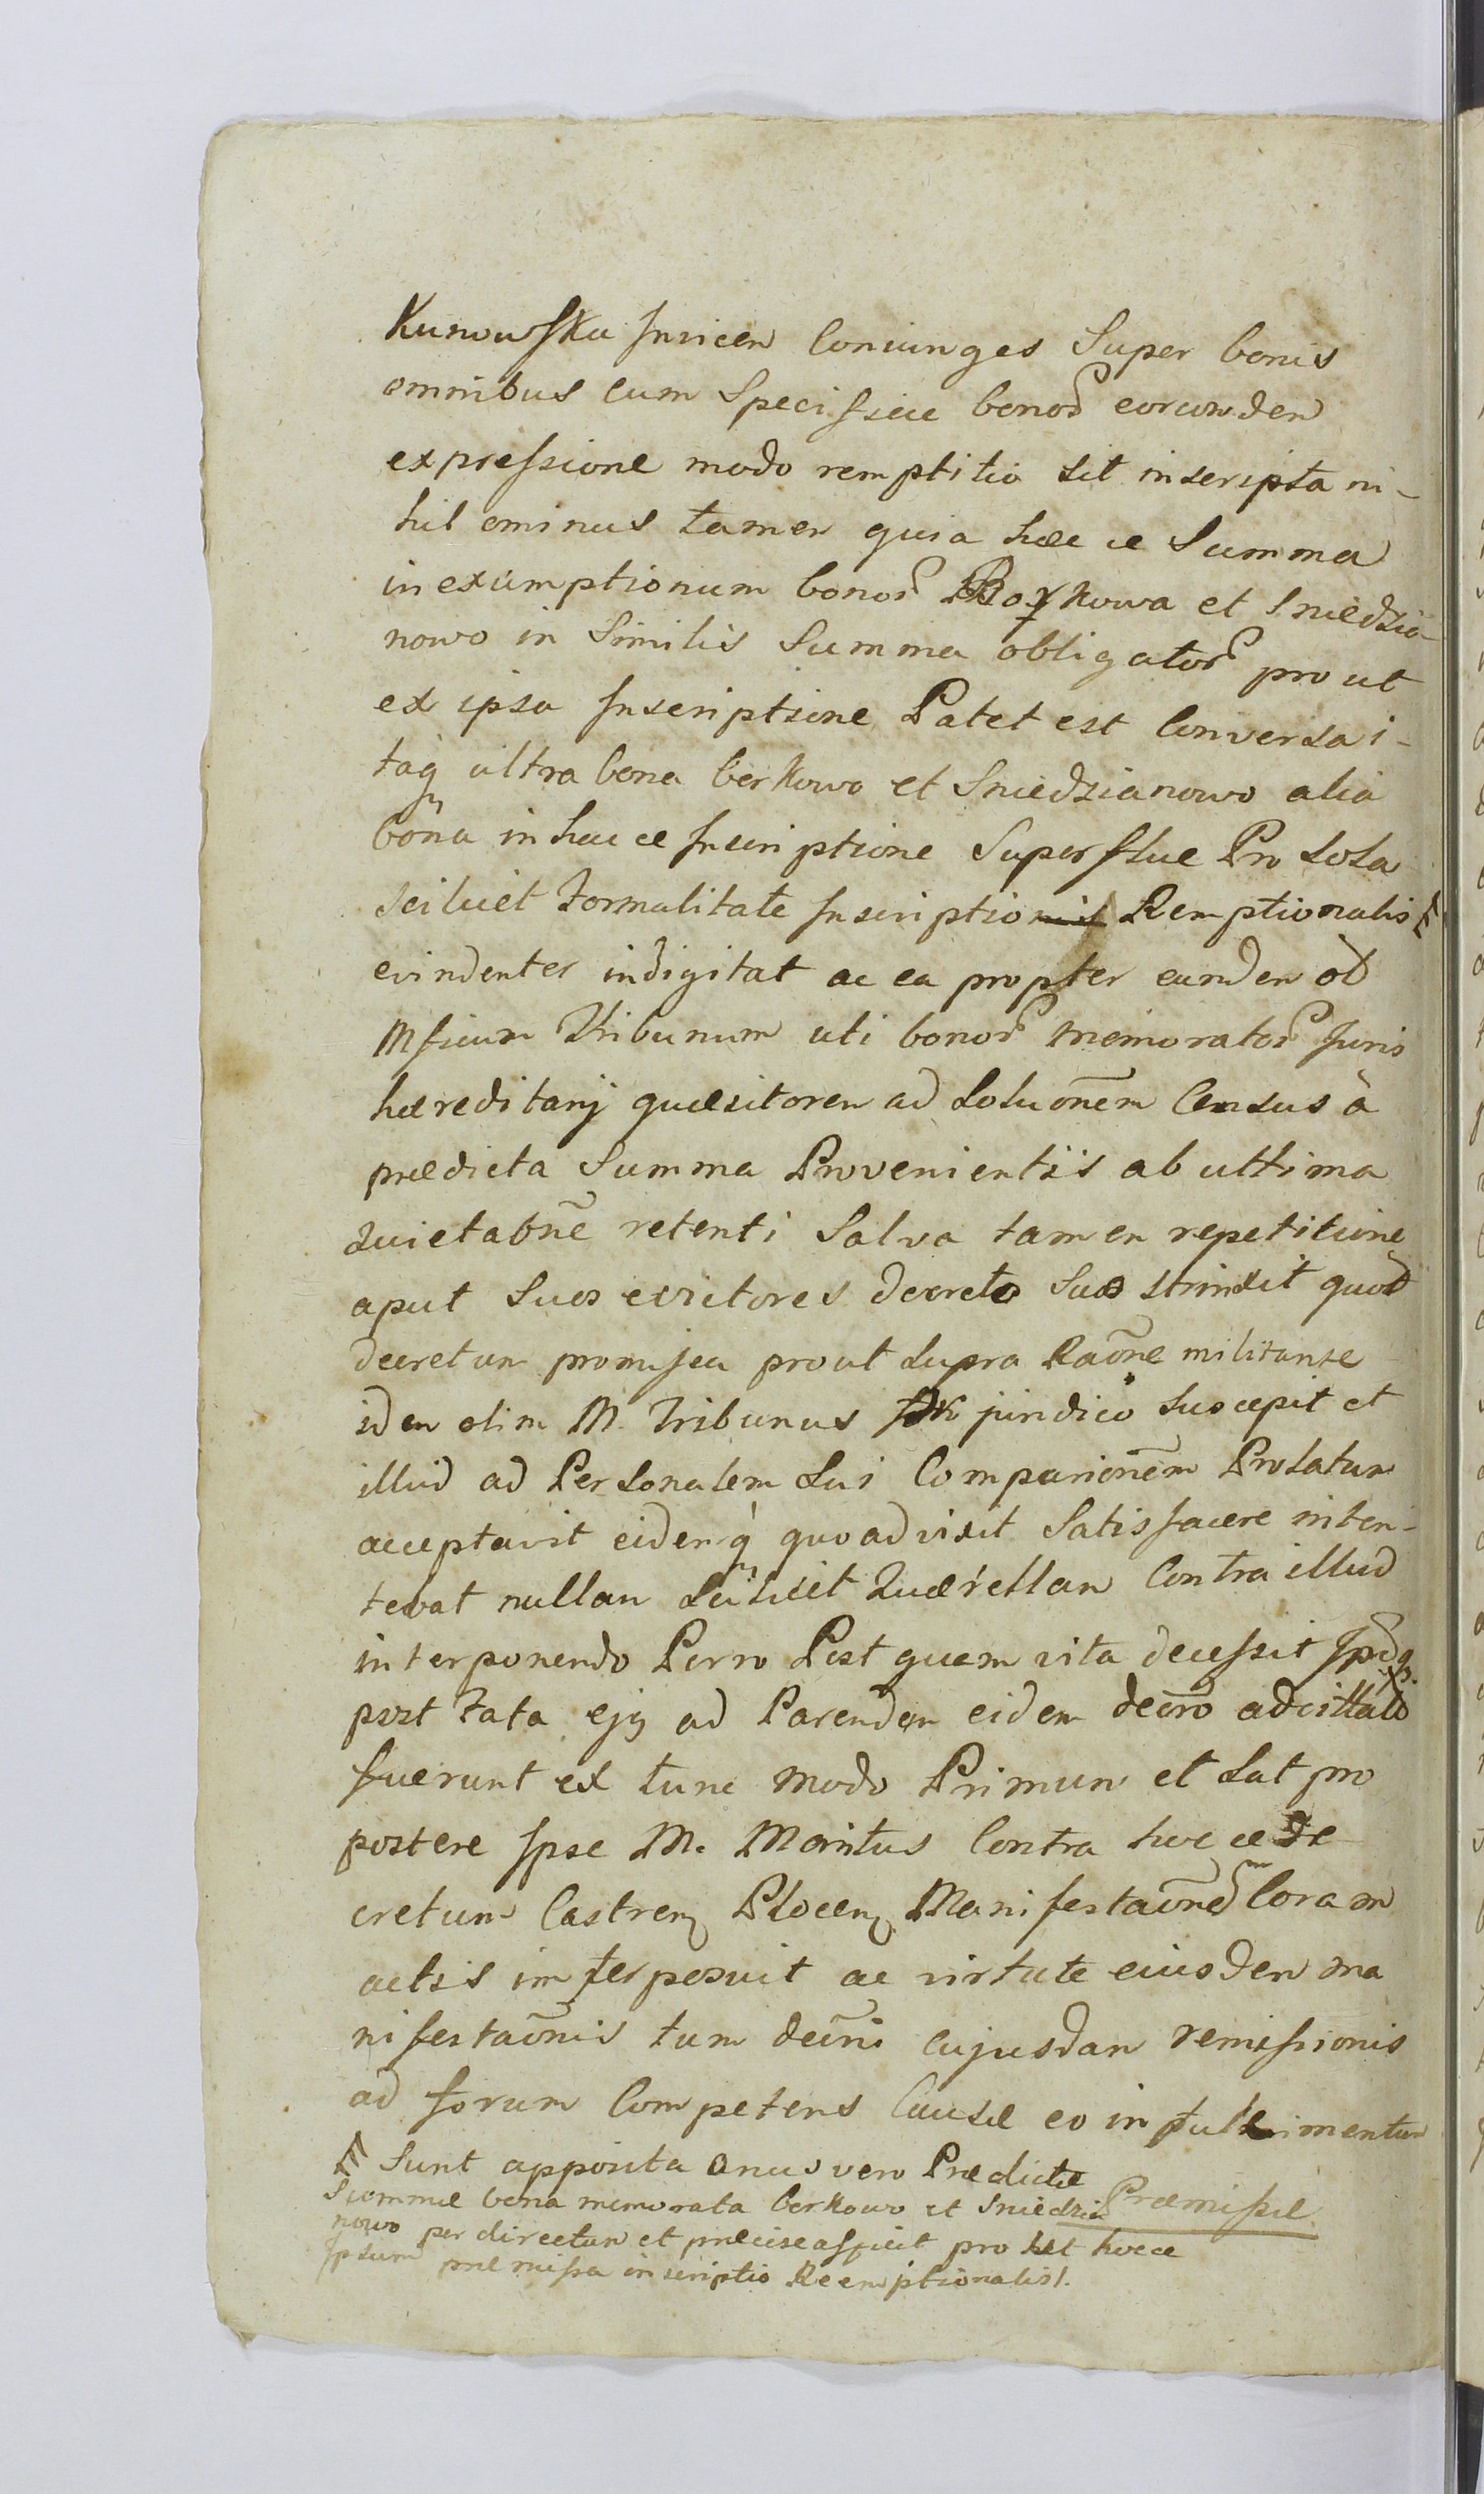 Kunowska Invicem Coniunges Super bonis
omnibus cum Specifice bonor̃ eorumdem
expressione modo remptitio sit inscripta ni-
hil ominus tamen quia hæc ce Summa
in exumptionum bonor̃ Borkowa et Sniedzia-
nowo in Similis Summa obligator̃ prout
ex ipsa Inscriptione Patet est Conversa i-
taq̃ ultra bona berkowo et Sniedzianowo alia
bona in hac ce Inscriptione Superflue Pro Sola
Scilicet Formalitate Inscriptionis Remptionalis
evindenter indigitat ac ea propter eundem ol
Mficum Tribunum uti bonor̃ memorator̃ Juris
hæreditarij quæsitorem ad Soluõnem Census à
prædicta Summa Provenientis ab ultima
quietaõne retenti Salva tamen repetitione
aput Suos evictores decreto Suo strinxit quod
decretum promissa prout Supra Raõne militante
idem olim M. Tribunus juridico Suscepit et
illud ad Personalem Sui Comparionẽm Prolatum
acceptavit eidemq̃ quoad vixit Satisfacere inten-
tebat nullam Scilicet Quærellam Contra illud
interponendo Porro Post quem vita decessit
post Fata ejq ad Parendem eidem decro adcittati
fuerunt ex tunc modo Primum et Sat pro
postere Ipse M. Maritus Contra hoc ce De
cretum Castren Plocen Manifestaõnem Coram
actis interposuit ac virtute eiusdem ma
nifestaõnis tum decri cujusdam remissionis
ad forum Competens Causæ eo in fulcimentum
Præmissæ
Sunt apposita onus vero Prædictæ
Summæ bona memorata berkowo et Sniedzia
nowo per directum et præcise afficit pro ut hocce
Ipsum præmissa inscriptio Reemptionalis/.